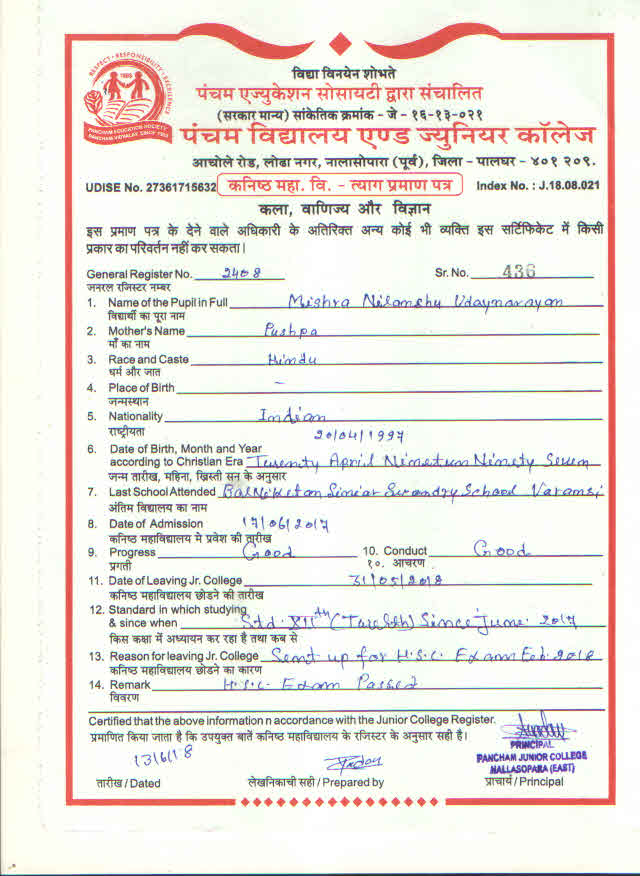 RESPECT • RESPONSIBILITY • EXCELLENCE
1985
PANCHAM EDUCATION SOCIETY
विद्या विनयेन शोभते
पंचम एज्युकेशन सोसायटी द्वारा संचालित
(सरकार मान्य) सांकेतिक क्रमांक - जे - १६-१३-०२१
पंचम विद्यालय एण्ड ज्युनियर कॉलेज
आचोले रोड, लोढा नगर, नालासोपारा (पूर्व), जिला - पालघर - ४०१ २०९.
UDISE No. 27361715632 कनिष्ठ महा. वि. - त्याग प्रमाण पत्र Index No. : J.18.08.021
कला, वाणिज्य और विज्ञान
इस प्रमाण पत्र के देने वाले अधिकारी के अतिरिक्त अन्य कोई भी व्यक्ति इस सर्टिफिकेट में किसी
प्रकार का परिवर्तन नहीं कर सकता।
General Register No. 2408 Sr. No. 436
जनरल रजिस्टर नम्बर
1. Name of the Pupil in Full Mishra Nilanshu Udaynarayan
विद्यार्थी का पूरा नाम
2. Mother's Name Pushpa
माँ का नाम
3. Race and Caste Hindu
धर्म और जात
4. Place of Birth –
जन्मस्थान
5. Nationality Indian
राष्ट्रीयता 20/04/1997
6. Date of Birth, Month and Year
according to Christian Era Twenty April Ninteen Ninety Seven
जन्म तारीख, महिना, ख्रिस्ती सन के अनुसार
7. Last School Attended Bal Niketan Siniar Secondry School Varansi
अंतिम विद्यालय का नाम
8. Date of Admission 17/06/2017
कनिष्ठ महाविद्यालय मे प्रवेश की तारीख
9. Progress Good 10. Conduct Good
प्रगती १०. आचरण
11. Date of Leaving Jr. College 31/05/2018
कनिष्ठ महाविद्यालय छोडने की तारीख
12. Standard in which studying
& since when Std. XIIth (Twelth) Since June. 2017
किस कक्षा में अध्यायन कर रहा है तथा कब से
13. Reason for leaving Jr. College Sent up for H.S.C. Exam Feb. 2018
कनिष्ठ महाविद्यालय छोडने का कारण
14. Remark H.S.C. Exam Passed
विवरण
Certified that the above information n accordance with the Junior College Register.
प्रमाणित किया जाता है कि उपयुक्त बातें कनिष्ठ महाविद्यालय के रजिस्टर के अनुसार सही है।
13/6/18
PRINCIPAL
PANCHAM JUNIOR COLLEGE
NALLASOPARA (EAST)
तारीख / Dated लेखनिकाची सही / Prepared by प्राचार्य / Principal